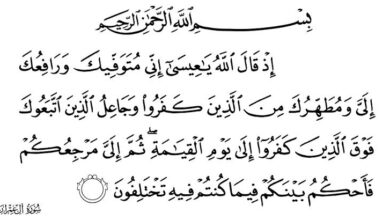 بِسْمِ اللَّهِ الرَّحْمَٰنِ الرَّحِيمِ
إِذْ قَالَ اللَّهُ يَا عِيسَىٰ إِنِّي مُتَوَفِّيكَ وَرَافِعُكَ
إِلَيَّ وَمُطَهِّرُكَ مِنَ الَّذِينَ كَفَرُوا وَجَاعِلُ الَّذِينَ اتَّبَعُوكَ
فَوْقَ الَّذِينَ كَفَرُوا إِلَىٰ يَوْمِ الْقِيَامَةِ ۖ ثُمَّ إِلَيَّ مَرْجِعُكُمْ
فَأَحْكُمُ بَيْنَكُمْ فِيمَا كُنتُمْ فِيهِ تَخْتَلِفُونَ
سُورَةُ آلِ عِمْرَان